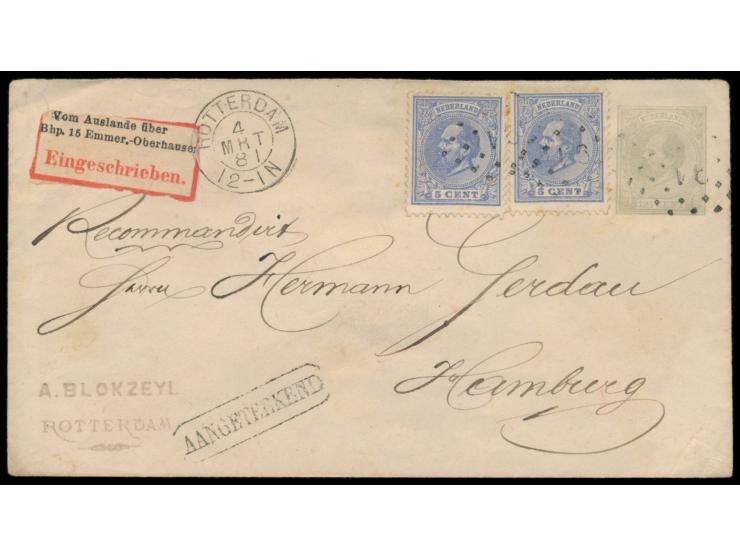 Vom Auslande über
Bhp. 15 Emmer.-Oberhausen
Eingeschrieben.
ROTTERDAM
4
MRT
81
12-1N
NEDERLAND
5 CENT
NEDERLAND
5 CENT
NEDERLAND
12½ CENT
91
Recommandirt
Herrn Hermann Gerdau
Hamburg
A. BLOKZEYL
ROTTERDAM
AANGETEEKEND